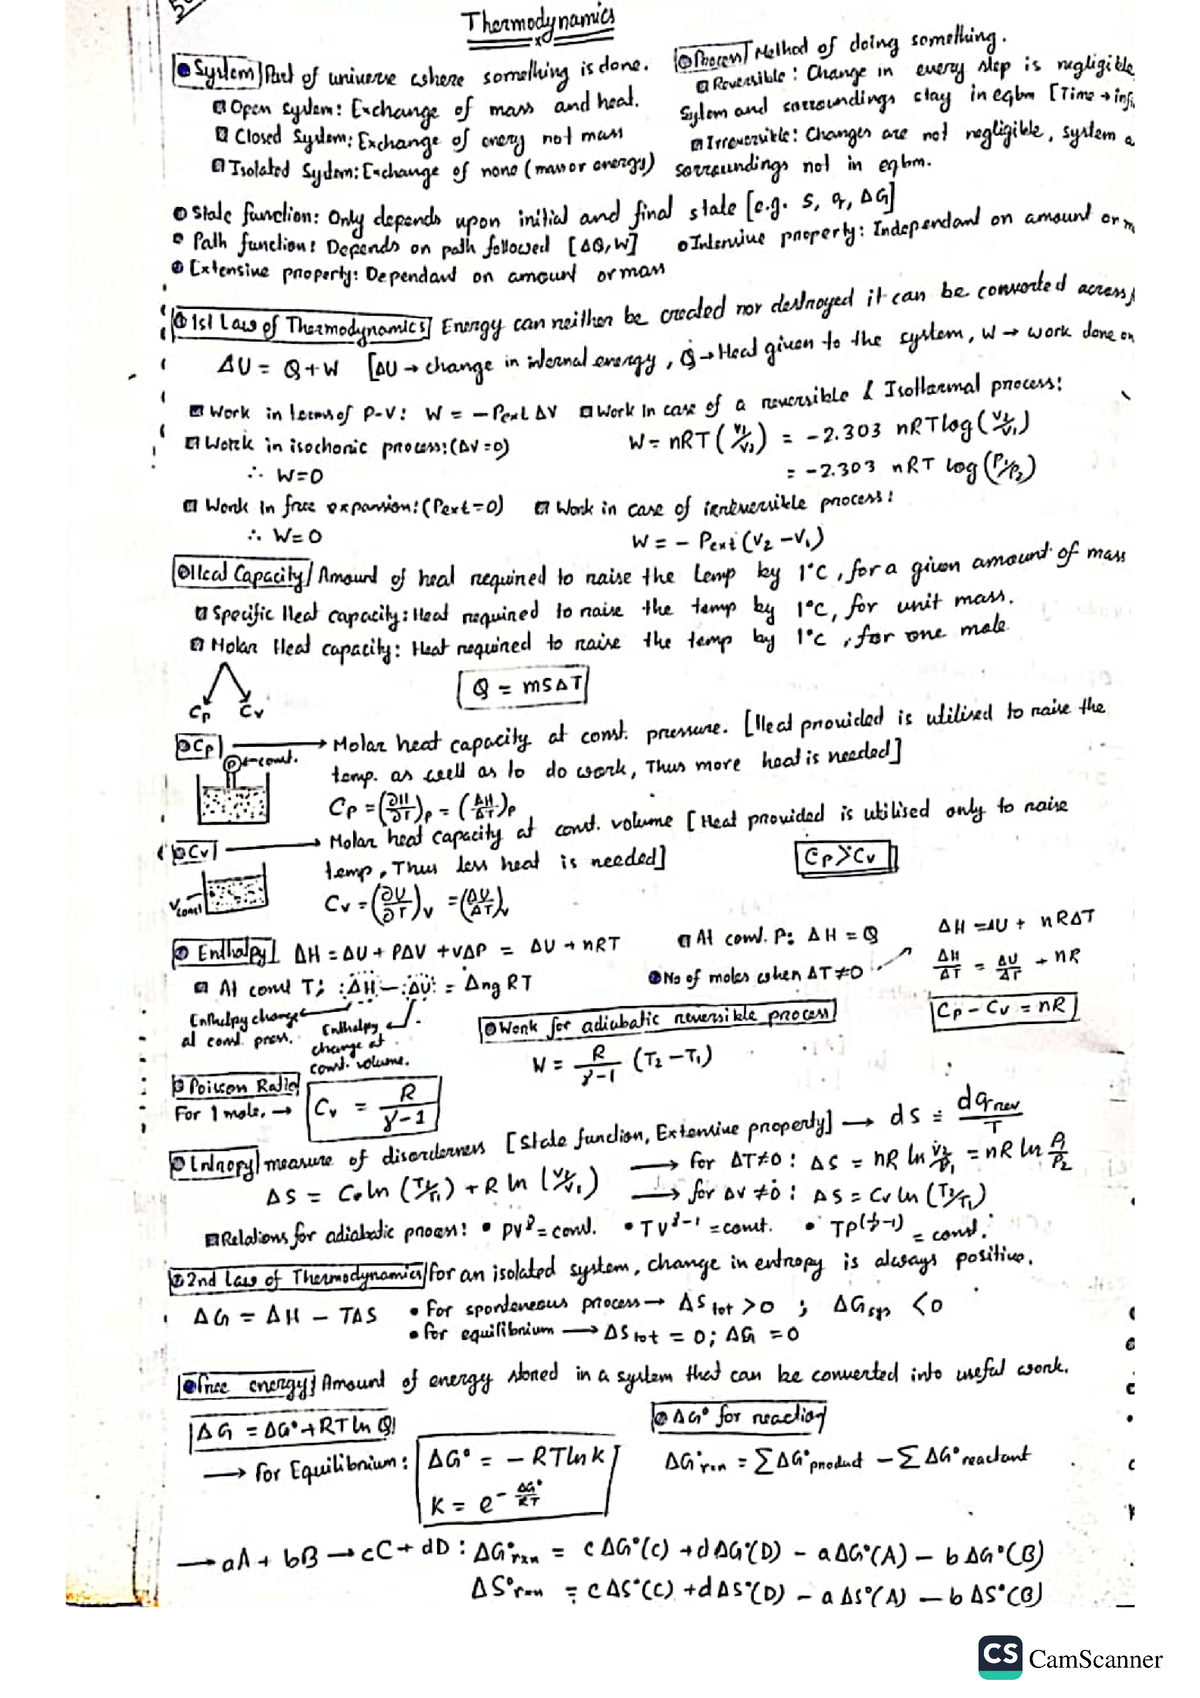 Thermodynamics
System Part of universe where something is done.
Open System: Exchange of mass and heat.
Closed System: Exchange of energy not mass
Isolated System: Exchange of none (mass or energy)
Process Method of doing something.
Reversible: Change in every step is negligible
System and sorroundings stay in eqbm [Time → inf
Irreversible: Changes are not negligible, system a
sorroundings not in eqbm.
State function: Only depends upon initial and final state [e.g. S, q, ΔG]
Path function: Depends on path followed [ΔQ, W]
Intensive property: Independant on amount or m
Extensive property: Dependant on amount or mass
1st Law of Thermodynamics Energy can neither be created nor destroyed it can be converted across
ΔU = Q + W [ΔU → change in internal energy, Q → Heat given to the system, W → work done on
Work in terms of P-V: W = - Pext ΔV
Work in case of a reversible & Isothermal process:
Work in isochoric process: (ΔV=0)
W = nRT (V2/V1) = -2.303 nRT log (V2/V1)
∴ W=0
= -2.303 nRT log (P1/P2)
Work in free expansion: (Pext=0)
Work in case of irreversible process:
∴ W=0
W = - Pext (V2 - V1)
Heat Capacity Amount of heat required to raise the temp by 1°C, for a given amount of mass
Specific Heat capacity: Heat required to raise the temp by 1°C, for unit mass.
Molar Heat capacity: Heat required to raise the temp by 1°C, for one mole
Cp Cv
Q = msΔT
Cp → Molar heat capacity at const. pressure. [Heat provided is utilised to raise the
P ← const.
temp. as well as to do work, Thus more heat is needed]
Cp = (∂H/∂T)p = (ΔH/ΔT)p
Cv → Molar heat capacity at const. volume [Heat provided is utilised only to raise
temp, Thus less heat is needed]
Cp > Cv
V const
Cv = (∂U/∂T)v = (ΔU/ΔT)v
Enthalpy ΔH = ΔU + PΔV + VΔP = ΔU + nRT
At const. P: ΔH = Q
ΔH = ΔU + nRΔT
At const T; ΔH - ΔU = Δng RT
No of moles when ΔT≠0
ΔH/ΔT = ΔU/ΔT + nR
Enthalpy change at const. press.
Enthalpy change at const. volume.
Cp - Cv = nR
Work for adiabatic reversible process
W = R/γ-1 (T2 - T1)
Poisson Ratio
For 1 mole, → Cv = R/γ-1
Entropy measure of disorderness [State function, Extensive property] → dS = dqrev/T
ΔS = Cv ln (T2/T1) + R ln (V2/V1)
→ for ΔT≠0: ΔS = nR ln V2/V1 = nR ln P1/P2
→ for ΔV≠0: ΔS = Cv ln (T2/T1)
Relations for adiabatic process: • PVγ = const. • TVγ-1 = const. • TP(1/γ-1) = const.
2nd Law of Thermodynamics for an isolated system, change in entropy is always positive.
ΔG = ΔH - TΔS • for spontaneous process → ΔStot > 0 ; ΔGsys < 0
• for equilibrium → ΔStot = 0; ΔG = 0
Free energy Amount of energy stored in a system that can be converted into useful work.
ΔG = ΔG° + RT ln Q
ΔG° for reaction
→ for Equilibrium: ΔG° = - RT ln K
ΔG°rxn = ΣΔG°product - ΣΔG°reactant
K = e - ΔG°/RT
→ aA + bB → cC + dD : ΔG°rxn = cΔG°(C) + dΔG°(D) - aΔG°(A) - bΔG°(B)
ΔS°rxn = cΔS°(C) + dΔS°(D) - aΔS°(A) - bΔS°(B)
CS CamScanner